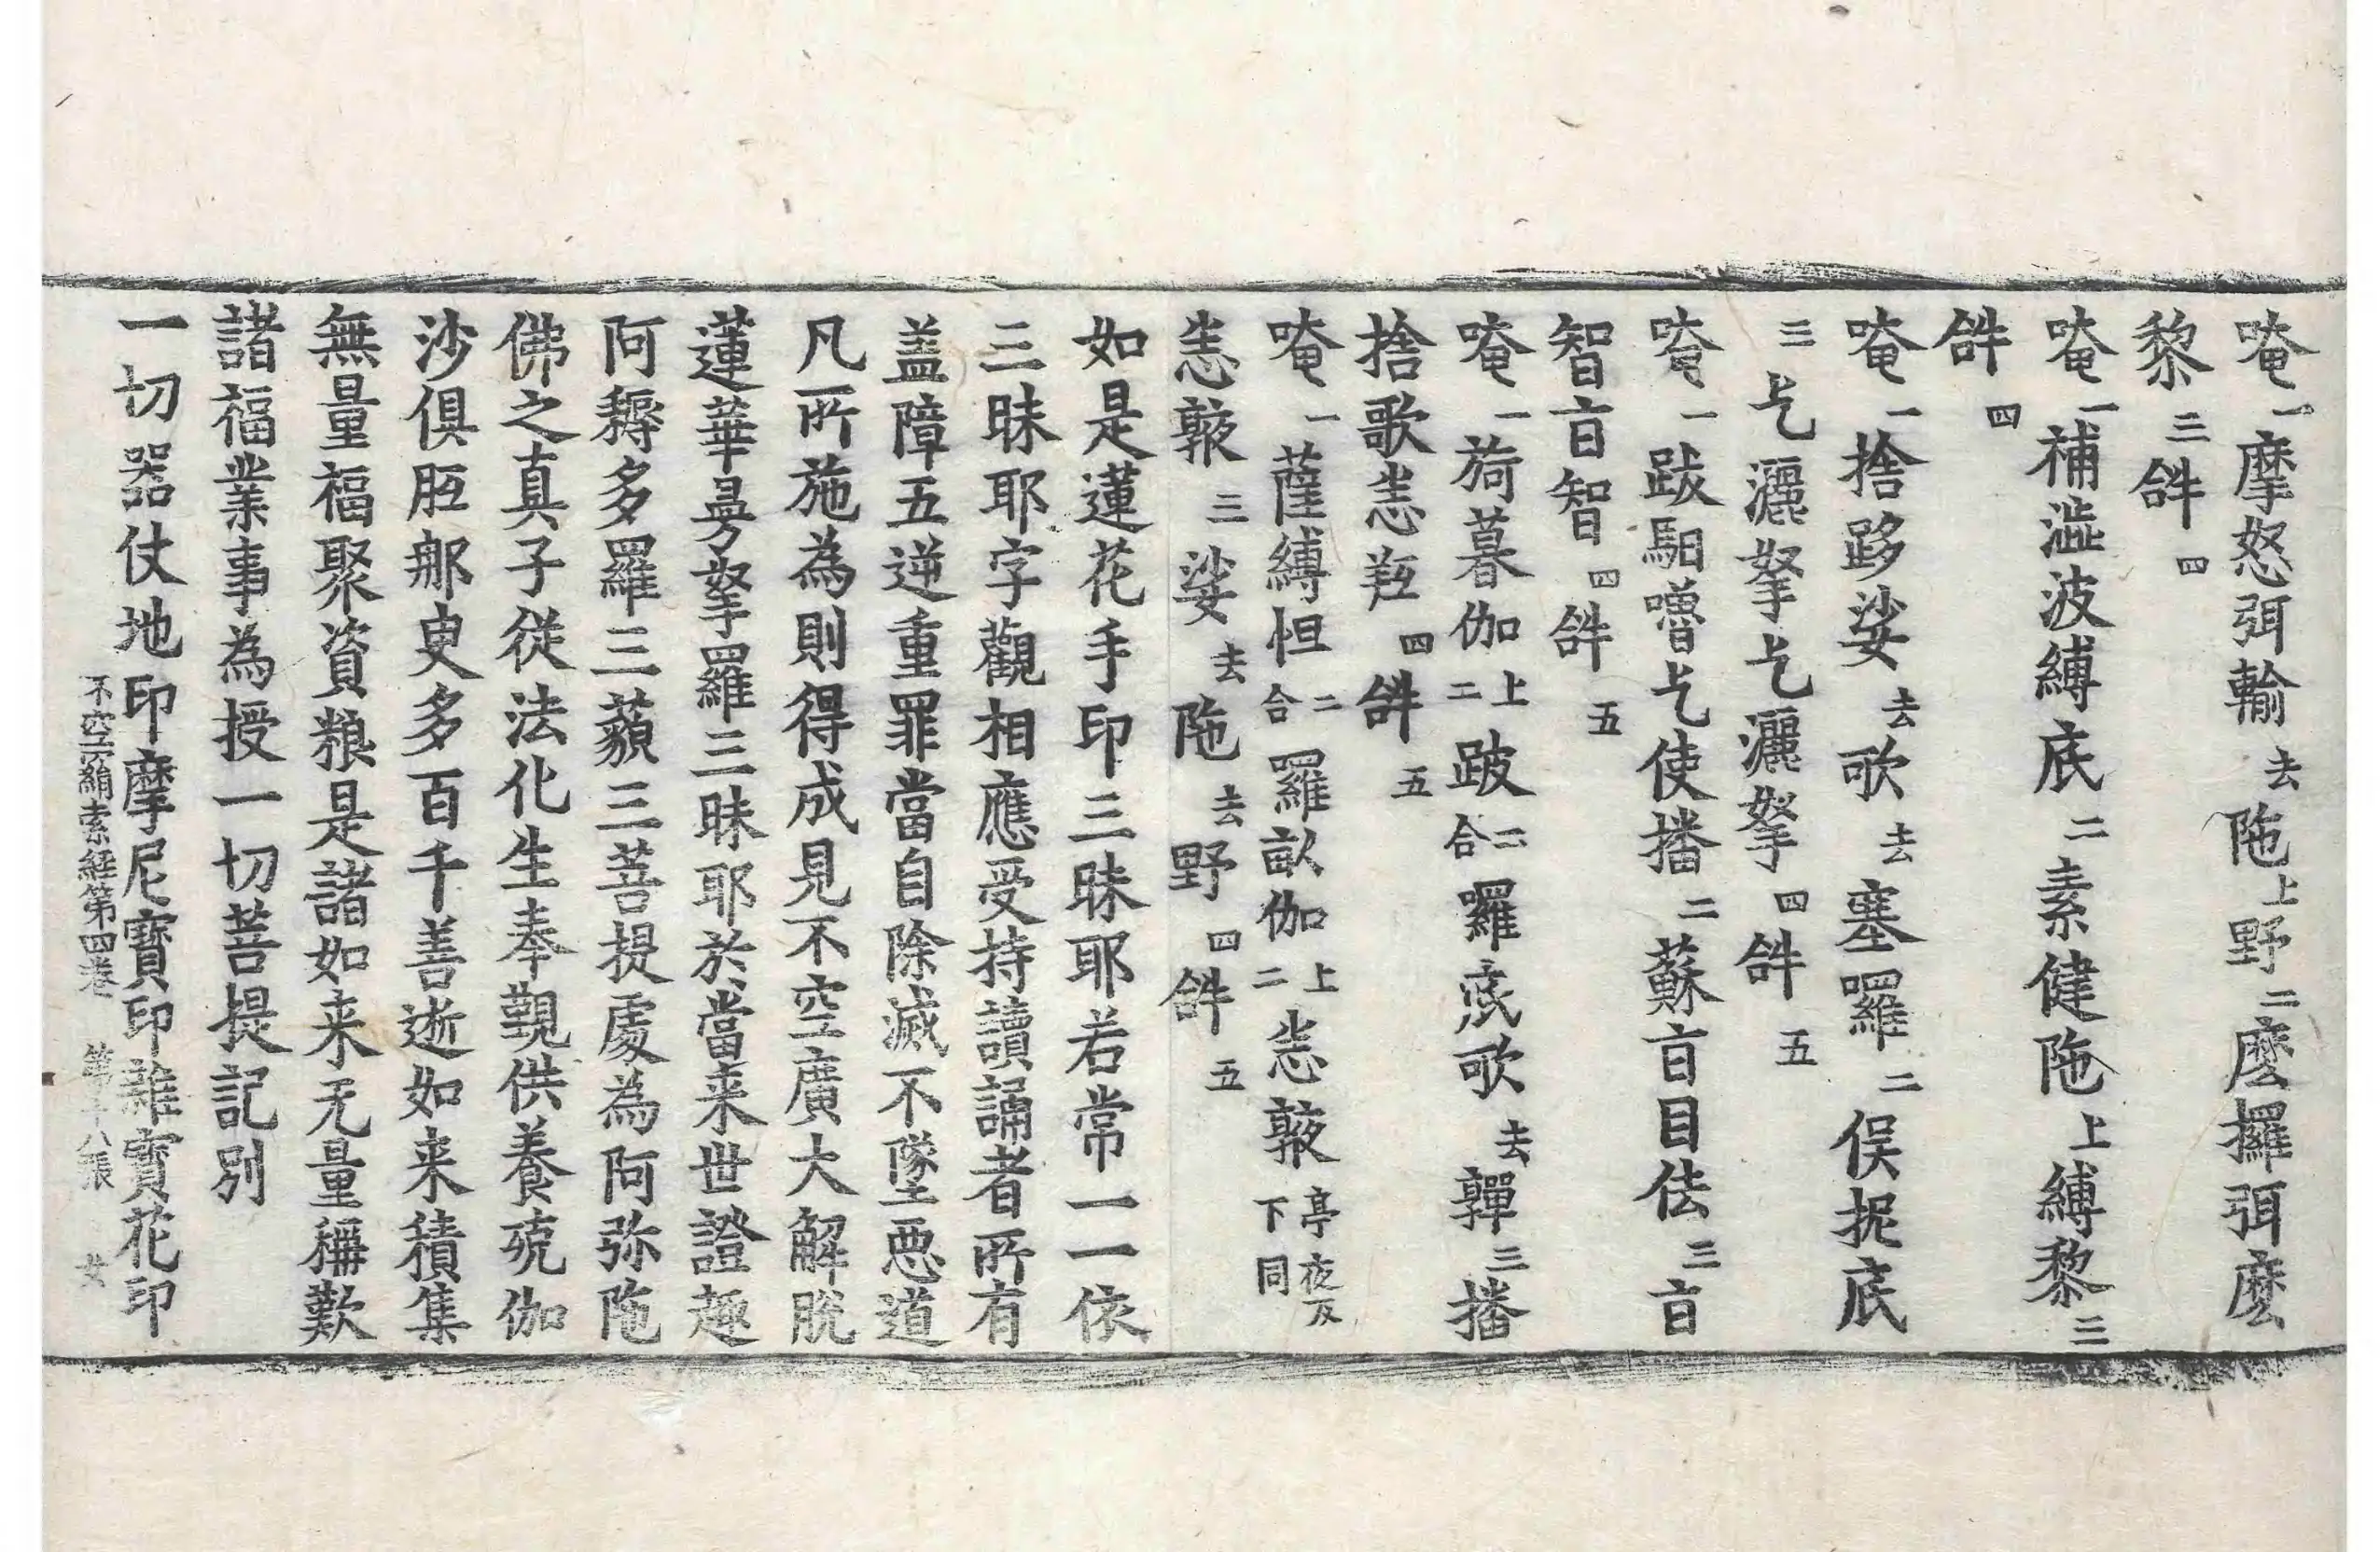 唵一摩怒弭輸去陁上野二麽攞弭麽
黎三𤙖四
唵一補澁波縛底二素健陁上縛黎三
𤙖四
唵一捨跢娑去歌去塞羅二俁抳底
三乞灑拏乞灑拏四𤙖五
唵一跋馹嚕乞使播二蘇盲目佉三盲
智盲智四𤙖五
唵一旖暮伽上二跛二合囉底歌去鞸三播
捨歌羝四𤙖五
唵一薩縛怛二合羅畝伽上二亭夜反下同
三娑去陁去野四𤙖五
如是蓮花手印三昧耶若常一一依
三昧耶字觀相應受持讀誦者所有
盖障五逆重罪當自除滅不墜惡道
凡所施為則得成見不空廣大解脫
蓮華曼拏羅三昧耶於當来世證趣
阿耨多羅三藐三菩提處為阿弥陁
佛之真子從法化生奉覲供養殑伽
沙俱胝那庾多百千善逝如来積集
無量福聚資粮是諸如来无量稱歎
諸福業事為授一切菩提記別
一切器仗地印摩尼寶印雜寶花印
不空羂索經第四卷 第十八張 女